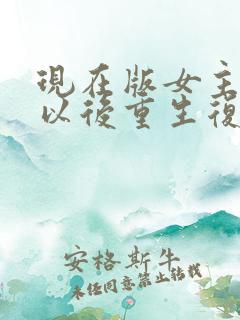 現在版女主
以後重生復
安格斯牛
未经同意禁止转载